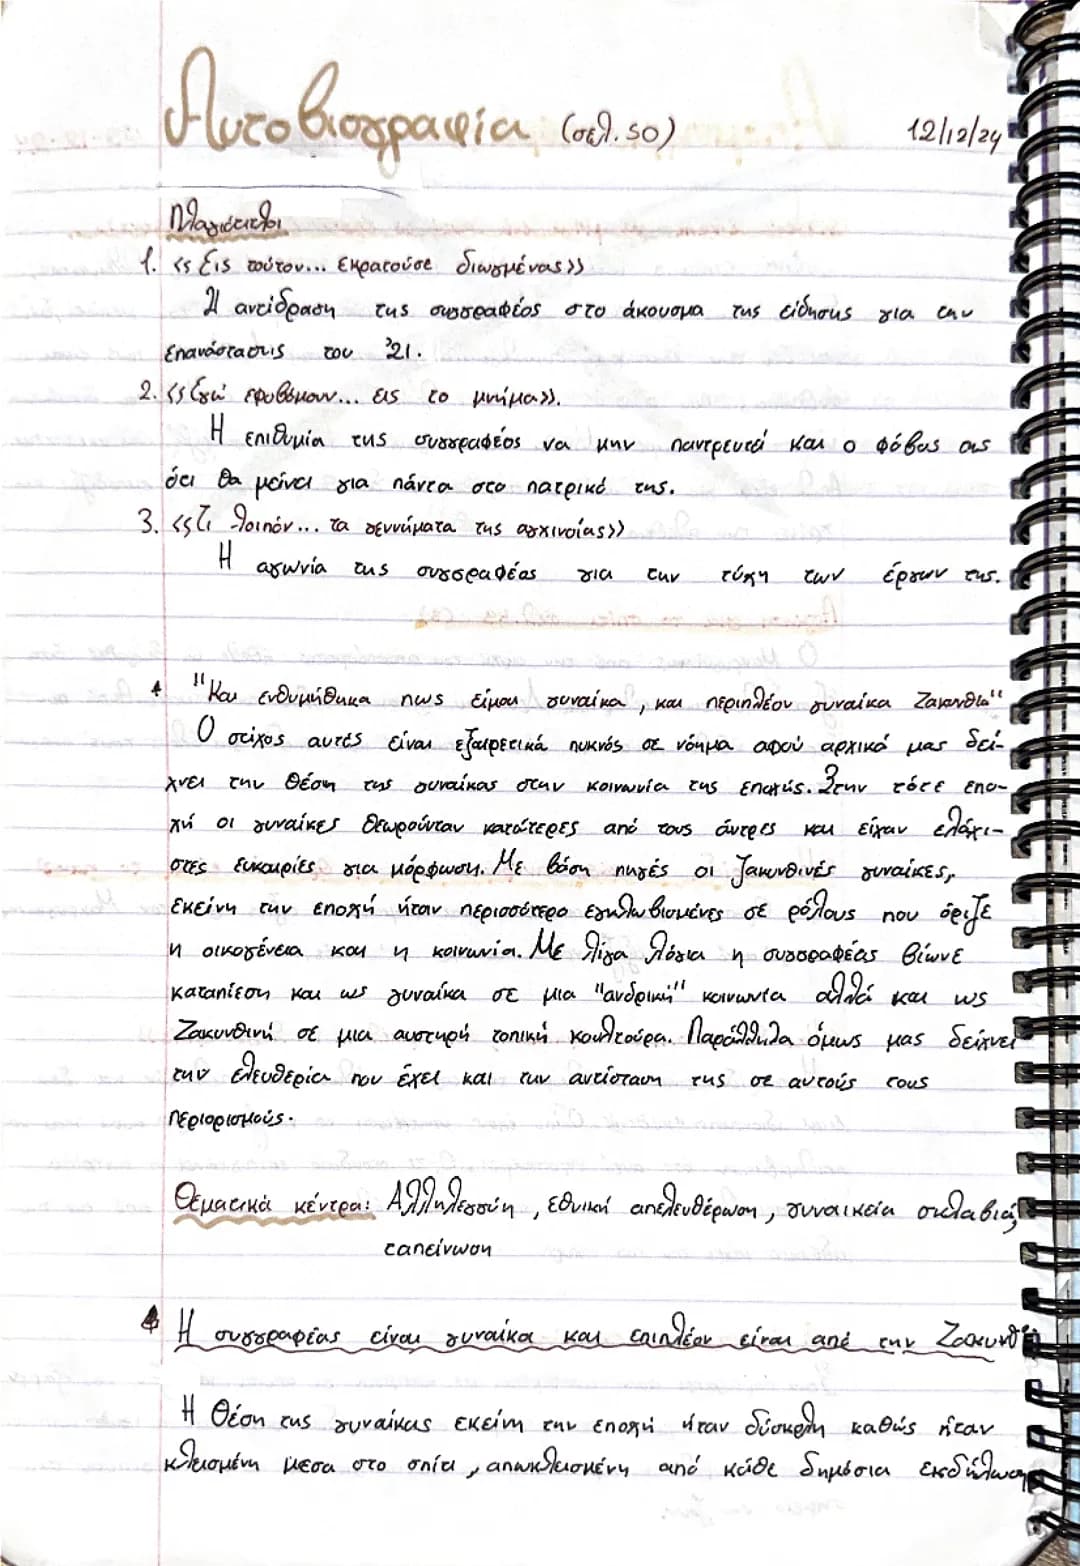 Αυτοβιογραφία (σελ. 50) 12/12/24
Πλαγιότιτλοι
1. «Εις τούτον... εκρατούσε διωγμένας»
Η αντίδραση της συγγραφέος στο άκουσμα της είδησης για την
επανάστασις του '21.
2. «Εγώ εφοβόμουν... εις το μνήμα».
Η επιθυμία της συγγραφέος να μην παντρευτεί και ο φόβος της
ότι θα μείνει για πάντα στο πατρικό της.
3. «Τι λοιπόν... τα γεννήματα της αγχινοίας»
Η αγωνία της συγγραφέας για την τύχη των έργων της.
"Και ενθυμήθηκα πως είμαι γυναίκα, και περιπλέον γυναίκα Ζακυνθία"
Ο στίχος αυτός είναι εξαιρετικά πυκνός σε νόημα αφού αρχικά μας δεί-
χνει την θέση της γυναίκας στην κοινωνία της εποχής. Στην τότε επο-
χή οι γυναίκες θεωρούνταν κατώτερες από τους άντρες και είχαν ελάχι-
στες ευκαιρίες για μόρφωση. Με βάση πηγές οι Ζακυνθινές γυναίκες,
εκείνη την εποχή ήταν περισσότερο εγκλωβισμένες σε ρόλους που όριζε
η οικογένεια και η κοινωνία. Με λίγα λόγια η συγγραφέας βίωνε
καταπίεση και ως γυναίκα σε μια "ανδρική" κοινωνία αλλά και ως
Ζακυνθινή σε μια αυστηρή τοπική κουλτούρα. Παράλληλα όμως μας δείχνει
την ελευθερία που έχει και την αντίσταση της σε αυτούς τους
περιορισμούς.
Θεματικά κέντρα: Αλληλεγγύη, εθνική απελευθέρωση, γυναικεία σκλαβιά,
ταπείνωση
Η συγγραφέας είναι γυναίκα και επιπλέον είναι από την
Η θέση της γυναίκας εκείνη την εποχή ήταν δύσκολη καθώς ήταν
κλεισμένη μεσα στο σπίτι, αποκλεισμένη από κάθε δημόσια